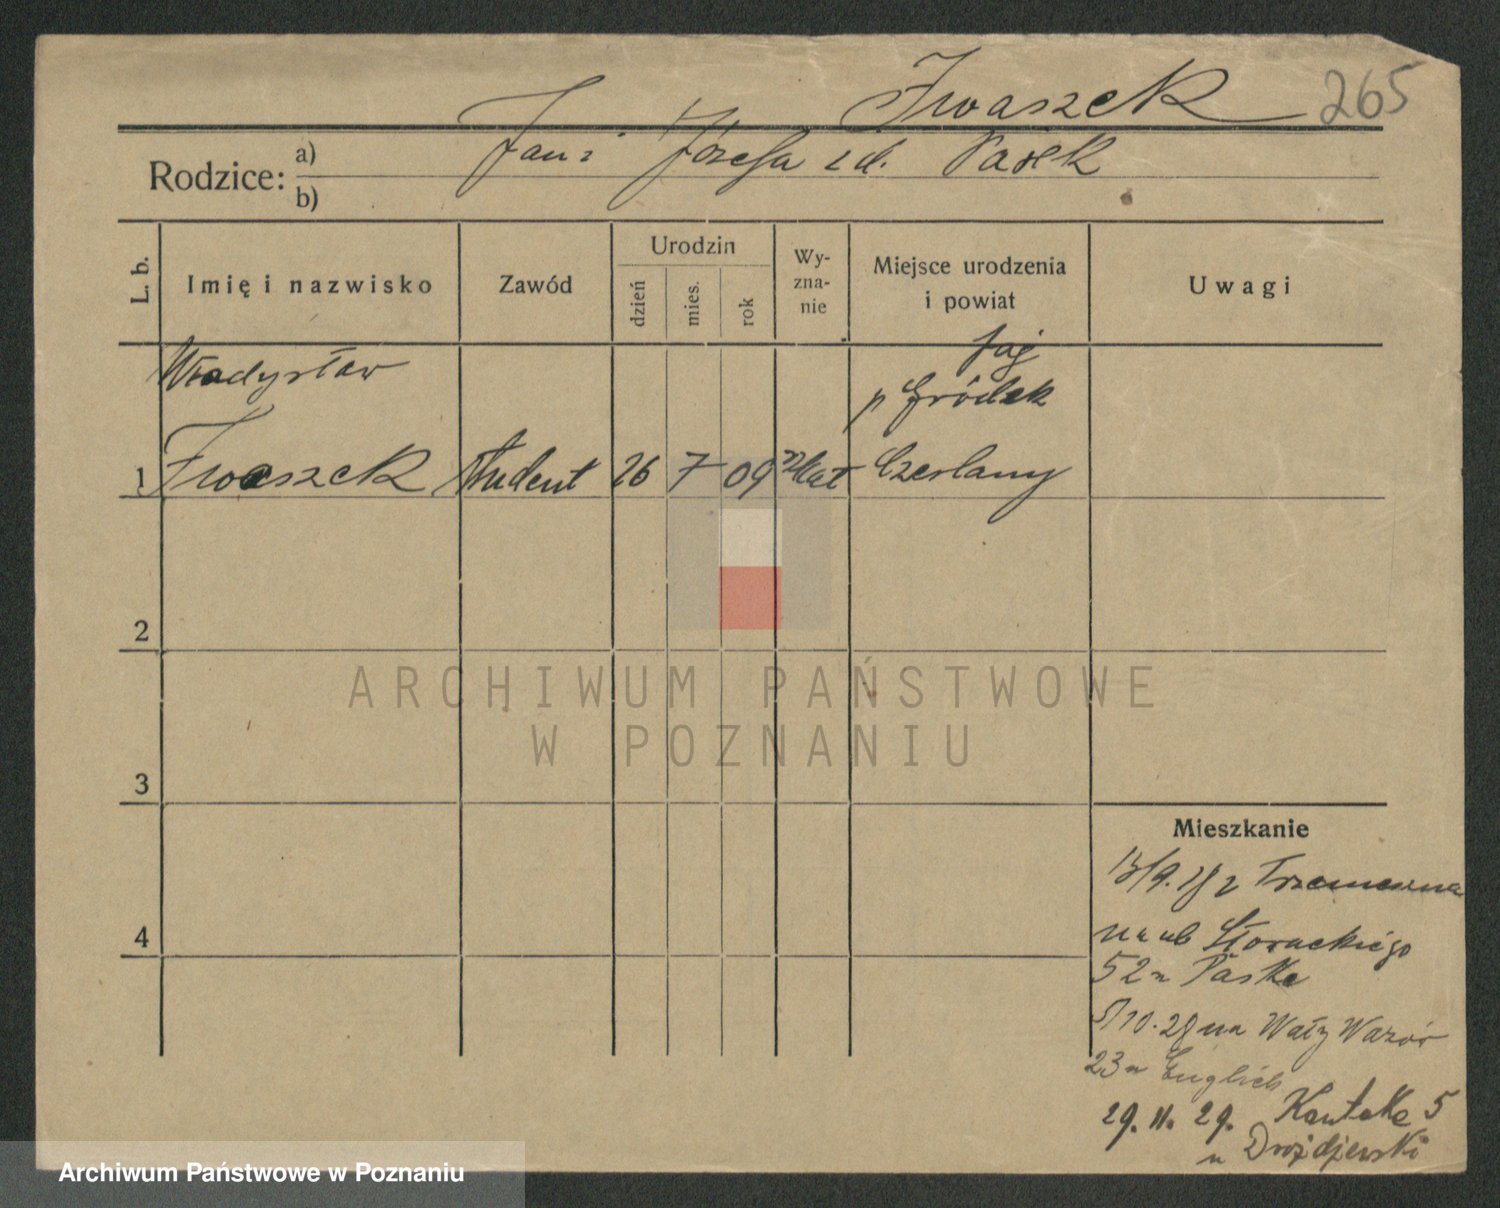 Iwaszek 265
Jan i Józefa z d. Pasek
Rodzice: a)
b)
L. b.
Imię i nazwisko
Zawód
Urodzin
dzień
mies.
rok
Wy-
zna-
nie
Miejsce urodzenia
i powiat
Uwagi
Władysław
Jag
p Gródek
1 Iwaszek student 26 7 09 kat Czerlany
2
3
4
ARCHIWUM PAŃSTWOWE
W POZNANIU
Mieszkanie
13/9. 28 z Trzemeszna
na ul Słowackiego
52 u Paska
5/10.28 na Wały Wazów
23 u Englich
29. 11. 29. Kantaka 5
u Drożdżewski
Archiwum Państwowe w Poznaniu